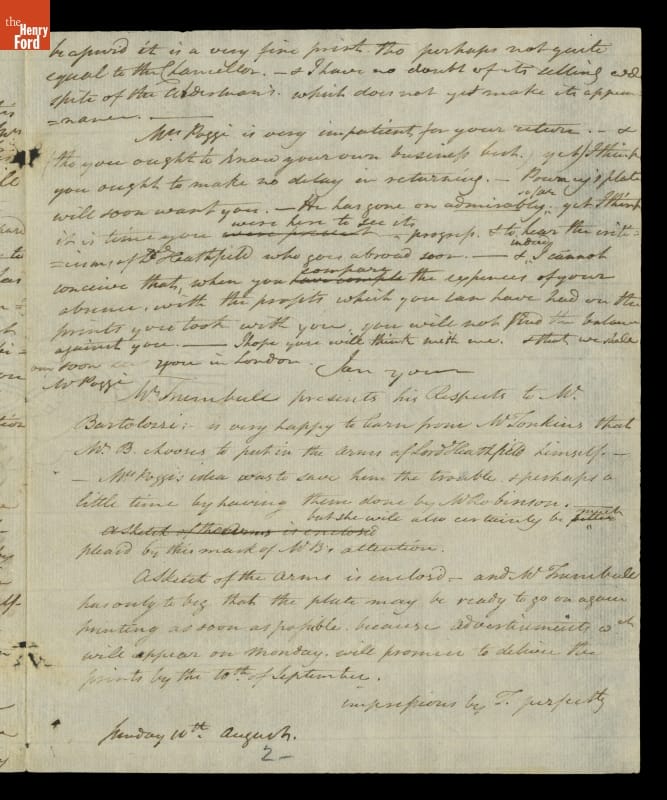 the
Henry
Ford
it is a very fine print. tho perhaps not quite
equal to the Chancellor. — & I have no doubt of its selling
spite of the Alderman's. which does not yet make its appea
=rance. —
Mrs Poggi is very impatient for your return. — &
tho you ought to know your own business best, yet I think
you ought to make no delay in returning. — plate
so far
will soon want you. — He has gone on admirably, yet I think
were here to see its
it is time you were present progress. & to hear the crit=
=icisms of Ld. Heathfield who goes abroad soon. — & indeed I cannot
compare
conceive that, when you have comple the expences of your
absence, with the profits which you can have had on the
prints you took with you, you will not find the balance
against you. — I hope you will think with me. & that we shall
soon you in London. I am your
Mr Poggi
Mr Trumbull presents his Respects to Mr.
Bartolozzi: is very happy to learn from Mr Tomkins that
Mr. B. chooses to put in the arms of Lord Heathfield himself. —
— Mrs Poggi's idea was to save him the trouble & perhaps a
little time by having them done by Mr Robinson.
but she will also certainly be much
a sketch of the arms is enclosed
pleasd by this mark of Mr B's attention.
A Sketch of the arms is enclosd — and Mr Trumbull
has only to beg that the plate may be ready to go on again
printing as soon as possible. because advertisements wch
will appear on monday. will promise to deliver the
prints by the 10th of September.
impressions by T. perfectly
Sunday 10th August.
2